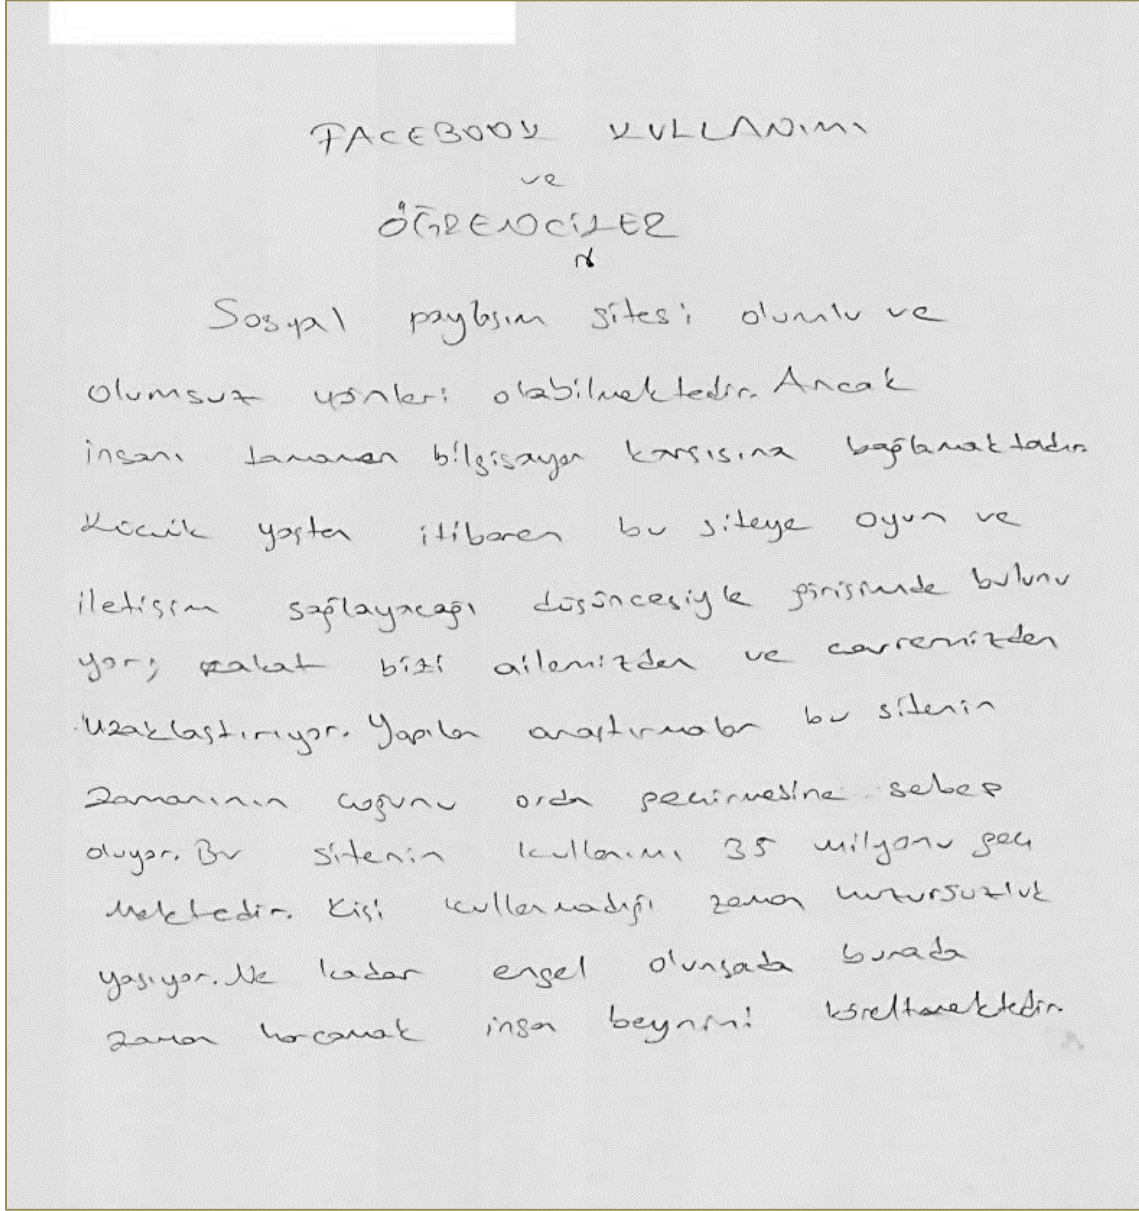 FACEBOOK KULLANIMI
ve
ÖĞRENCİLER
Sosyal paylaşım sitesi olumlu ve
olumsuz yönleri olabilmektedir. Ancak
insanı tamamen bilgisayar karşısına bağlamaktadır.
Küçük yaştan itibaren bu siteye oyun ve
iletişim sağlayacağı düşüncesiyle girişimde bulunu
yor; fakat bizi ailemizden ve çevremizden
uzaklaştırıyor. Yapılan araştırmalar bu sitenin
zamanının çoğunu orda geçirmesine sebep
oluyor. Bu sitenin kullanımı 35 milyonu geç
mektedir. Kişi kullanmadığı zaman huzursuzluk
yaşıyor. Ne kadar engel olunsada burada
zaman harcamak insan beynini köreltmektedir.